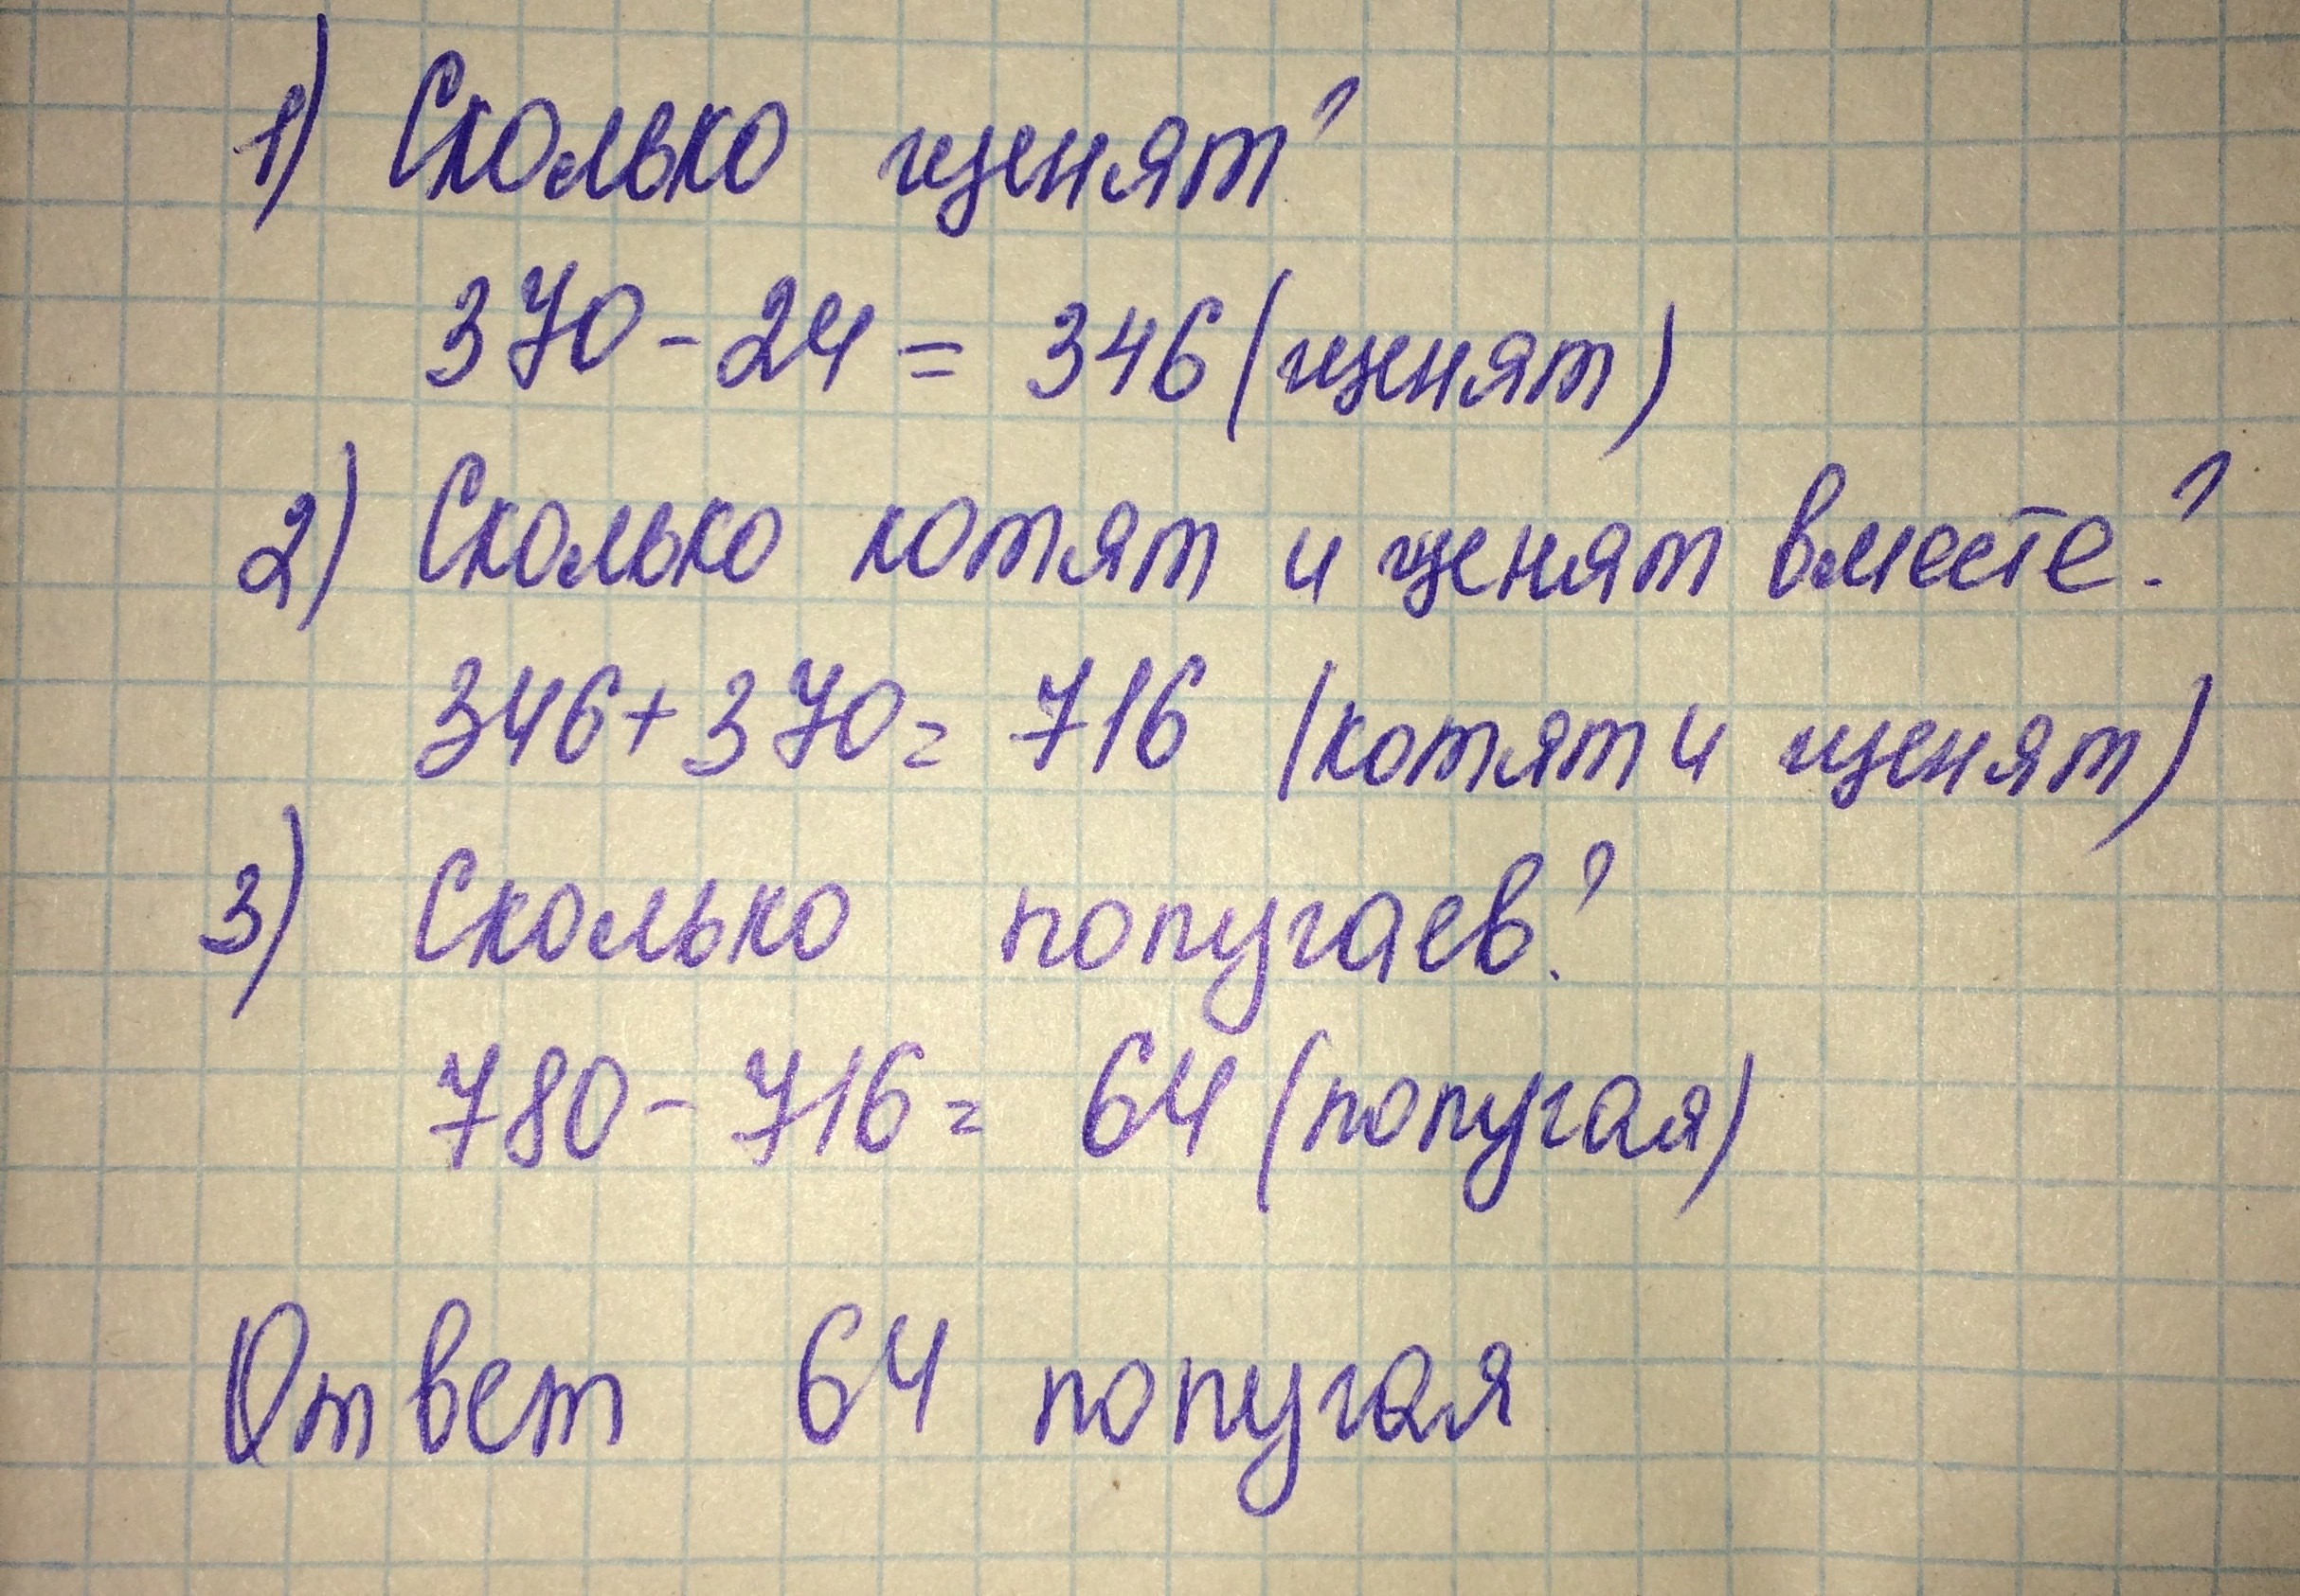 1) Сколько щенят?
370 - 24 = 346 (щенят)
2) Сколько котят и щенят вместе?
346 + 370 = 716 (котят и щенят)
3) Сколько попугаев?
780 - 716 = 64 (попугая)
Ответ 64 попугая